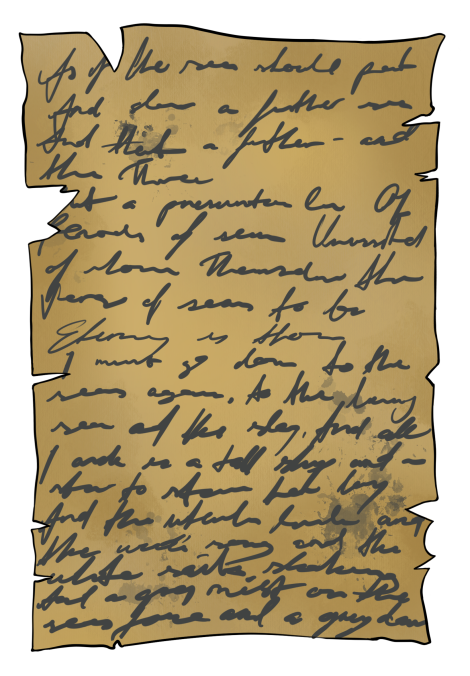 As if the sea should part
And show a further sea
And that a further - and
the Three
but a presumption be Of
Periods of seas Unvisited
of shores Themselves the
Verge of seas to be
Eternity is Those
I must go down to the
seas again, to the lonely
sea and the sky, And all
I ask is a tall ship and a
star to steer her by
And the wheels kick and
the wind's song and the
white sail's shaking
And a grey mist on the
seas face and a grey dawn